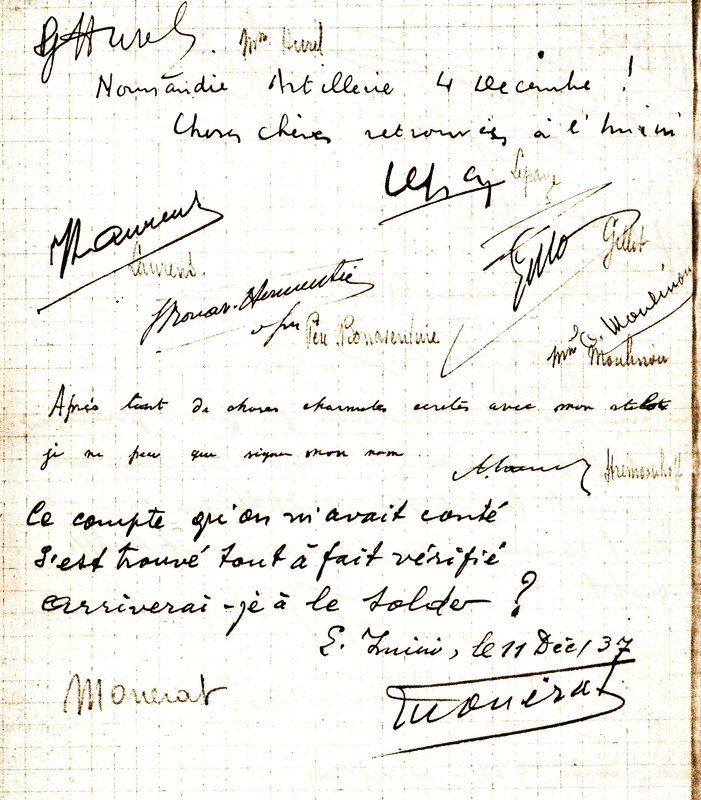 G Hurel. Mme Hurel
Normandie Artillerie 4 Décembre !
Choses chères retrouvées à l'
Lepage
Laurent
Laurent.
Gillot
Père Bonaventure
Mme G. Moulinou
Moulinou
Après tant de choses charmates ecrites avec mon
je ne peu que signer mon nom
Ce compte qu'on m'avait conté
S'est trouvé tout à fait vérifié
arriverai-je à le solder ?
le 11 Déc 37
Monerat
Monérat